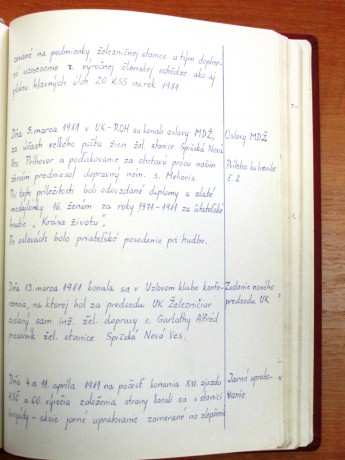 cované na podmienky železničnej stanice a tým doplne-
né uznesenie z výročnej členskej schôdze ako aj
plánu hlavných úloh ZO KSS na rok 1981.
Dňa 5. marca 1981 v UK-ROH sa konali oslavy MDŽ,
za účasti veľkého počtu žien žel. stanice Spišská Nová
Ves. Príhovor a poďakovanie za obetavú prácu našim
ženám predniesol dopravný nám. s. Mehoris.
Pri tejto príležitosti boli odovzdané diplomy a zlaté
medailónky 12. ženám za roky 1971-1981 za čitateľské
hnutie „Krása životu".
Po oslavách bolo priateľské posedenie pri hudbe.
Oslavy MDŽ
Príloha
č. 2
Dňa 13. marca 1981 konala sa v Uzlovom klube konfe-
rencia, na ktorej bol za predsedu UK Železničiar
zvolený sam. inž. žel. dopravy s. Garlathy Alfréd
pracovník žel. stanice Spišská Nová Ves.
Zvolenie nového
predsedu UK
Dňa 4 a 11. apríla 1981 na počesť konania XVI. zjazdu
KSČ a 60. výročia založenia strany konali sa v stanici
brigády - akcie jarné upratovanie zamerané na zlepšenie
Jarné uprato-
vanie